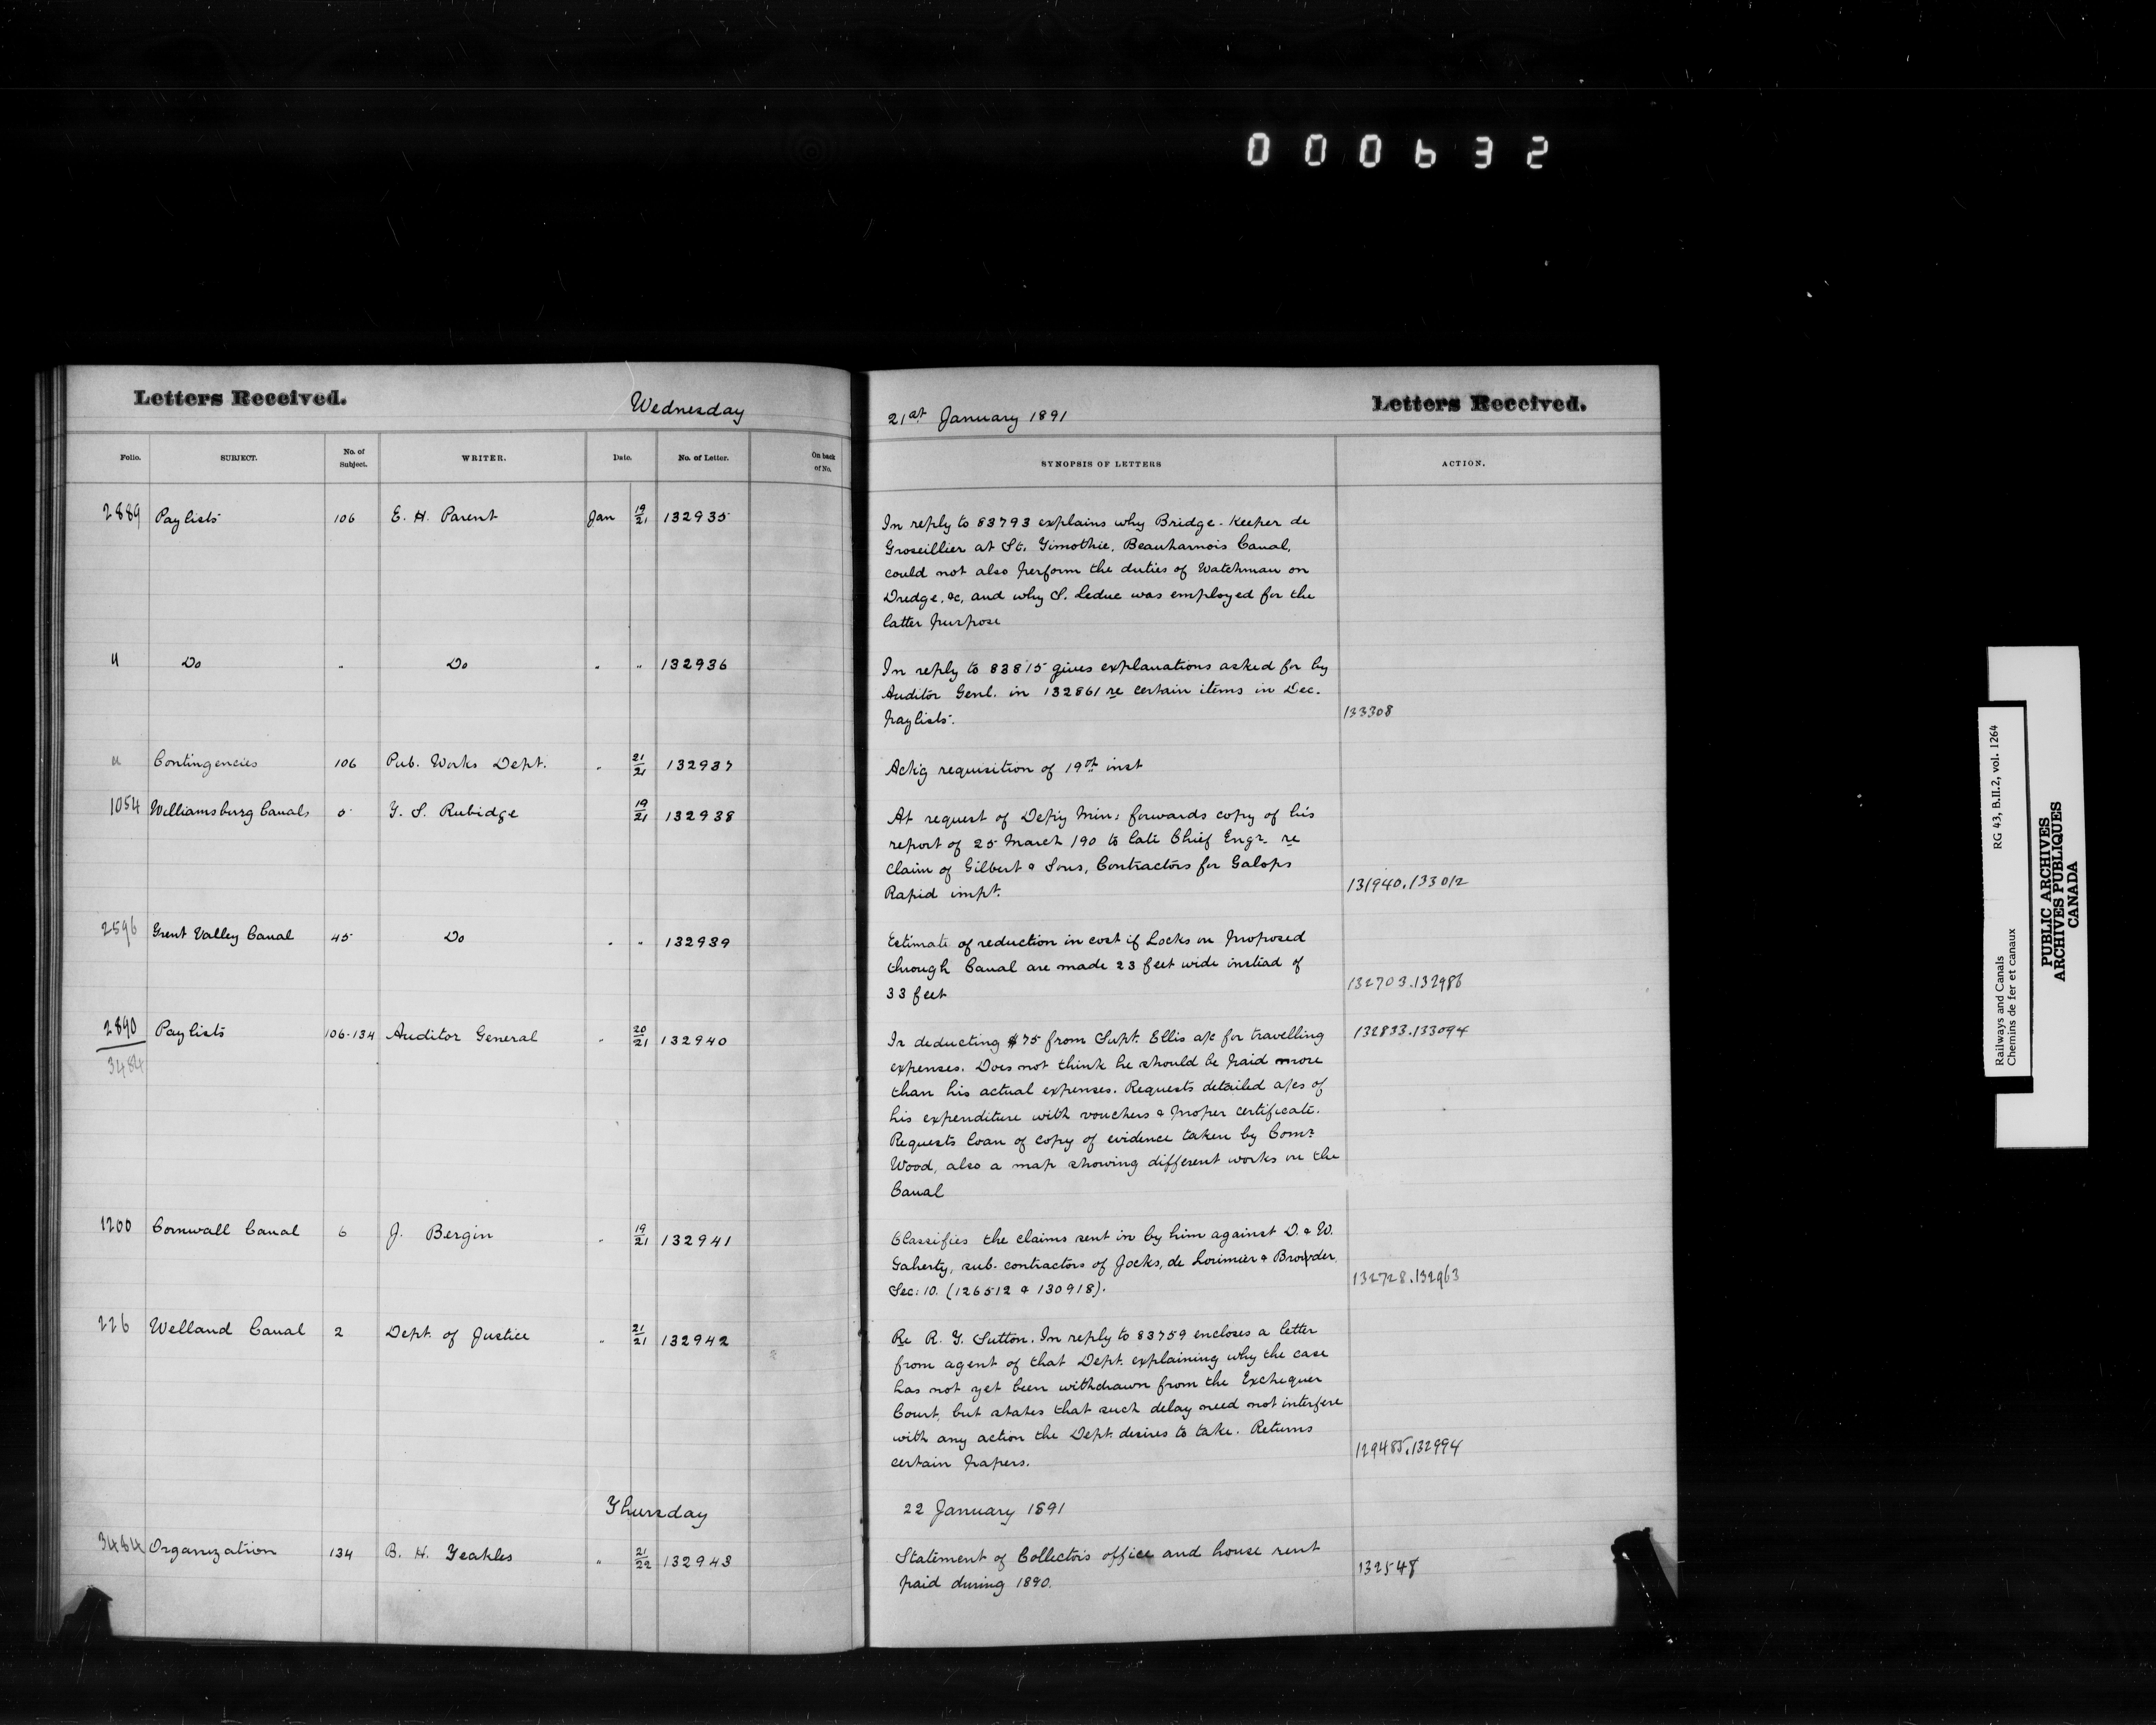 000632
Letters Received.
Wednesday
21st January 1891
Letters Received.
Folio. SUBJECT. No. of Subject. WRITER. Date. No. of Letter. On back of No. SYNOPSIS OF LETTERS ACTION.
2889 Paylists 106 E. H. Parent Jan 19/21 132935
In reply to 83793 explains why Bridge-Keeper de
Groseillier at St. Timothie, Beauharnois Canal,
could not also perform the duties of Watchman on
Dredge, &c, and why S. Leduc was employed for the
latter purpose
" Do " Do " " 132936
In reply to 83815 gives explanations asked for by
Auditor Genl. in 132861 re certain items in Dec.
Paylists.
133308
" Contingencies 106 Pub. Works Dept. " 21/21 132937
Ack'g requisition of 19th inst
1054 Williamsburg Canals 5 T. S. Rubidge 19/21 132938
At request of Depy Min: forwards copy of his
report of 25 March '90 to late Chief Engr. re
claim of Gilbert & Sons, Contractors for Galops
Rapid impt.
131940.133012
2596 Trent Valley Canal 45 Do " " 132939
Estimate of reduction in cost if Locks on proposed
through Canal are made 23 feet wide instead of
33 feet
132703.132986
2890 Paylists 106-134 Auditor General " 20/21 132940
3484
Is deducting $75 from Supt. Ellis a/c for travelling
expenses. Does not think he should be paid more
than his actual expenses. Requests detailed a/cs of
his expenditure with vouchers & proper certificate.
Requests loan of copy of evidence taken by Comr
Wood, also a map showing different works on the
Canal
132833.133094
1200 Cornwall Canal 6 J. Bergin " 19/21 132941
Classifies the claims sent in by him against D. & W.
Gaherty, sub-contractors of Jocks, de Lorimier & Browder,
Sec: 10. (126512 & 130918).
132728.132963
226 Welland Canal 2 Dept. of Justice " 21/21 132942
Re R. T. Sutton. In reply to 83759 encloses a letter
from agent of that Dept. explaining why the case
has not yet been withdrawn from the Exchequer
Court, but states that such delay need not interfere
with any action the Dept. desires to take. Returns
certain papers.
129485.132994
Thursday
22 January 1891
3484 Organization 134 B. H. Teakles " 21/22 132943
Statement of Collectors office and house rent
paid during 1890.
132548
Railways and Canals RG 43, B.II.2, vol. 1264
Chemins de fer et canaux
PUBLIC ARCHIVES
ARCHIVES PUBLIQUES
CANADA